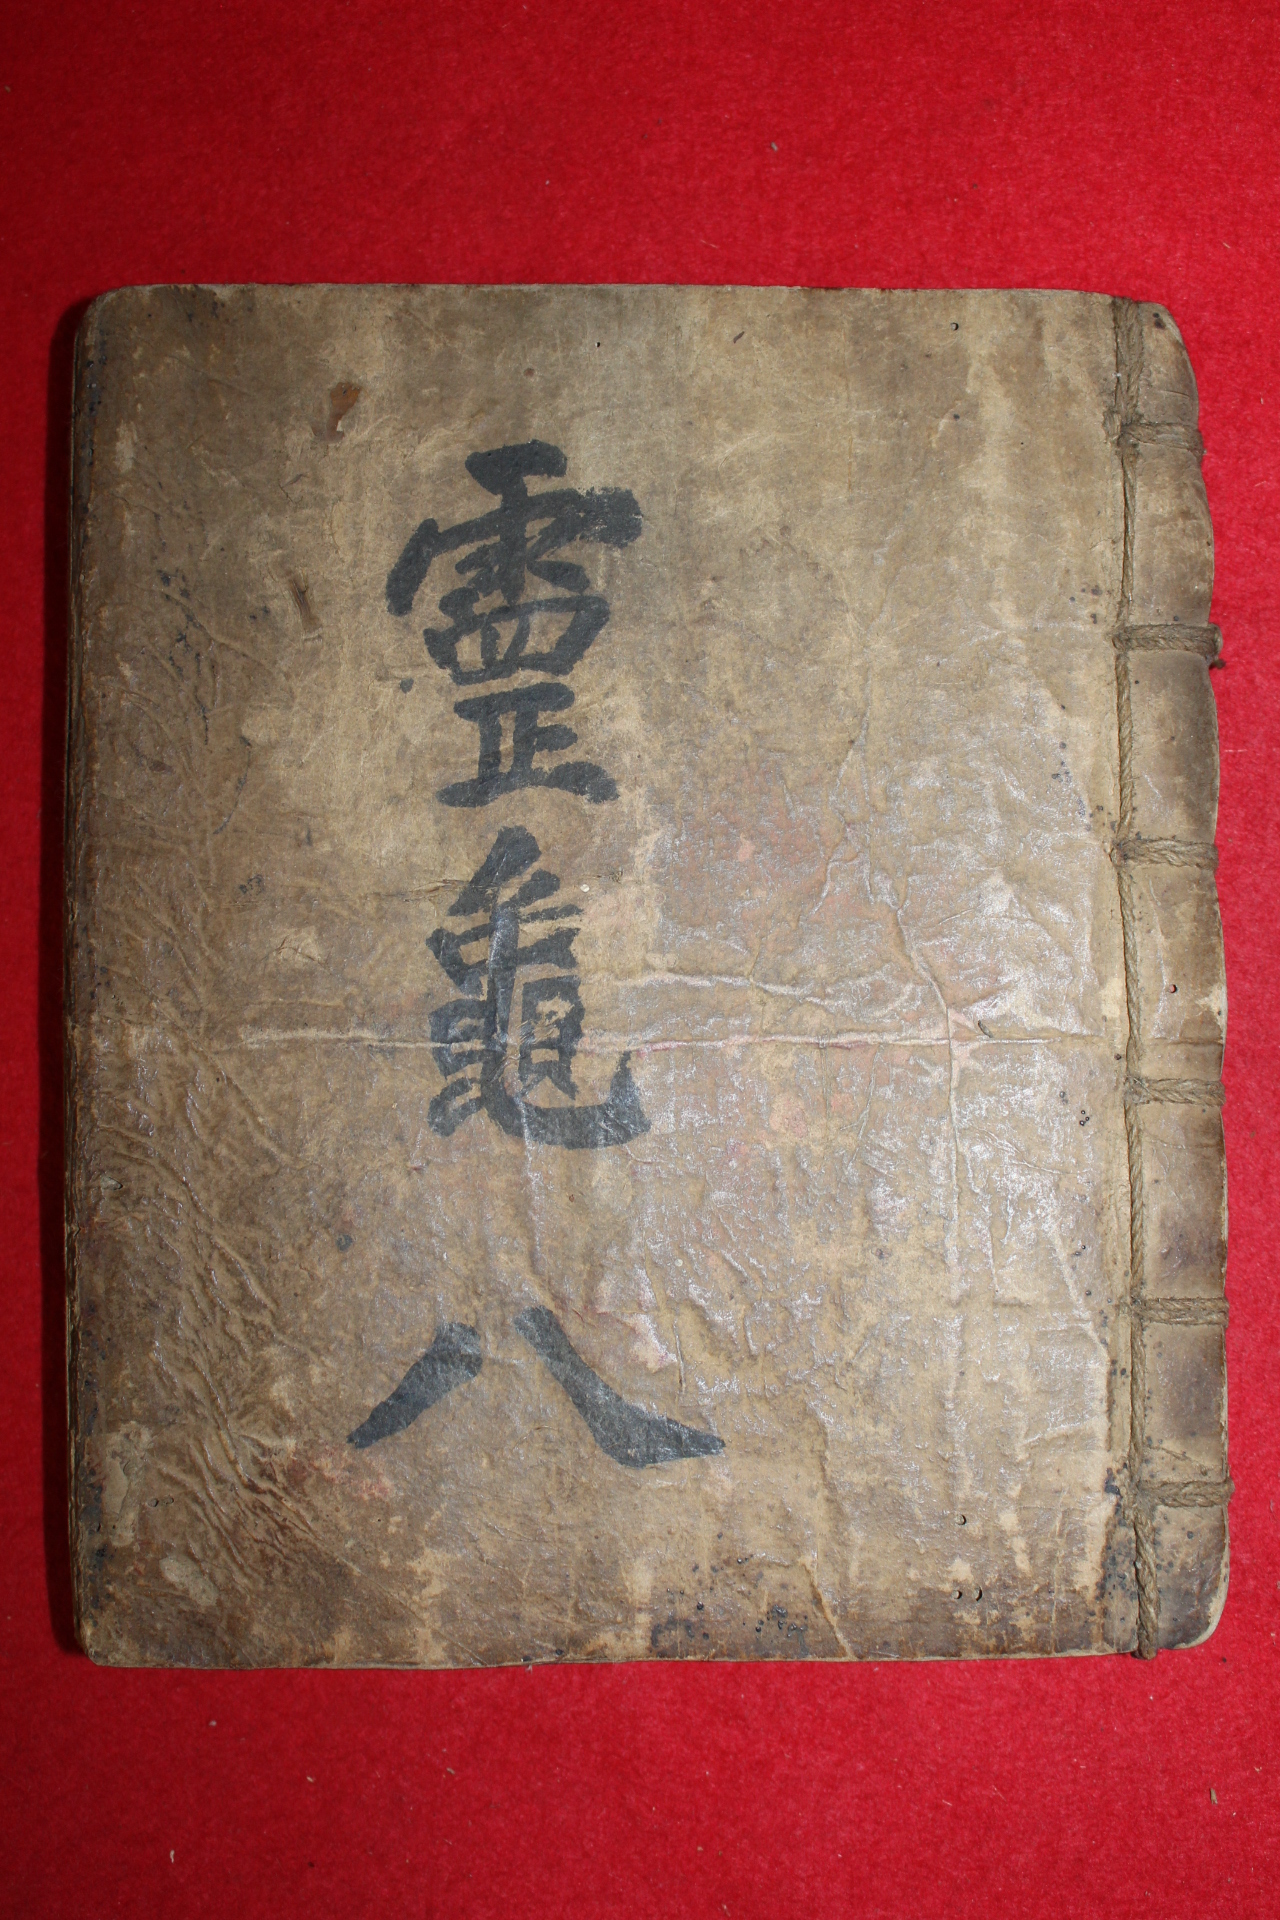 靈龜 八